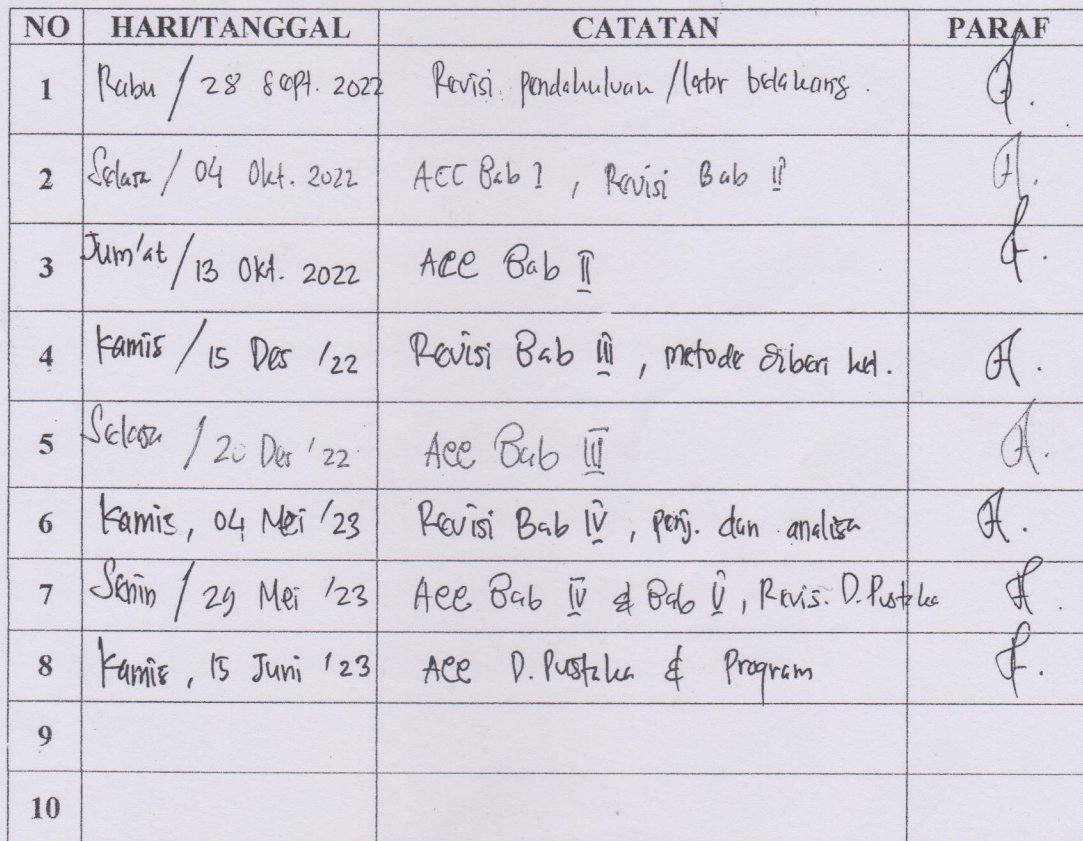 NO HARI/TANGGAL CATATAN PARAF
1 Rabu / 28 Sept. 2022 Revisi pendahuluan / latar belakang.
2 Selasa / 04 Okt. 2022 ACC Bab I, Revisi Bab II
3 Jum'at / 13 Okt. 2022 ACC Bab II
4 Kamis / 15 Des '22 Revisi Bab III, metode diberi ket.
5 Selasa / 20 Des '22 ACC Bab III
6 Kamis, 04 Mei '23 Revisi Bab IV, penj. dan analisa
7 Senin / 29 Mei '23 ACC Bab IV & Bab V, Revis. D. Pustaka
8 Kamis, 15 Juni '23 ACC D. Pustaka & Program
9
10